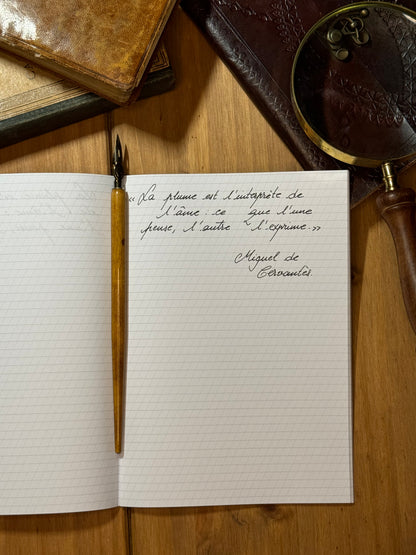 « La plume est l'intaprète de
l'âme : ce que l'une
pense, l'autre l'exprime. »
Miguel de
Cervantes.